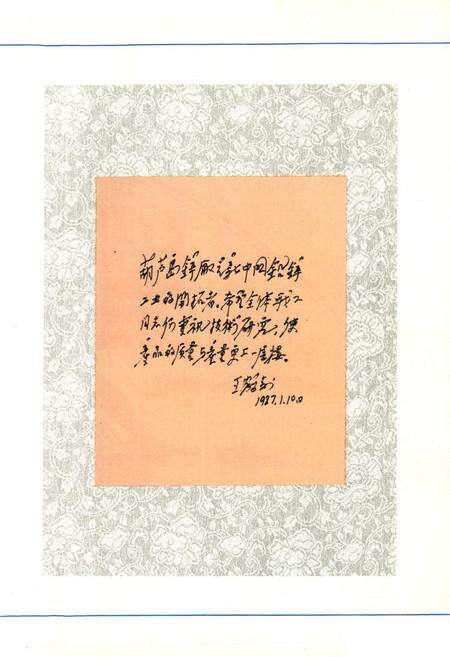 葫芦岛锌厰是中国铅锌
工业的開拓者，希望全体职工
同志们重视技術研究，使
産品的质量与産量更上一层楼。
王
1987.1.10日